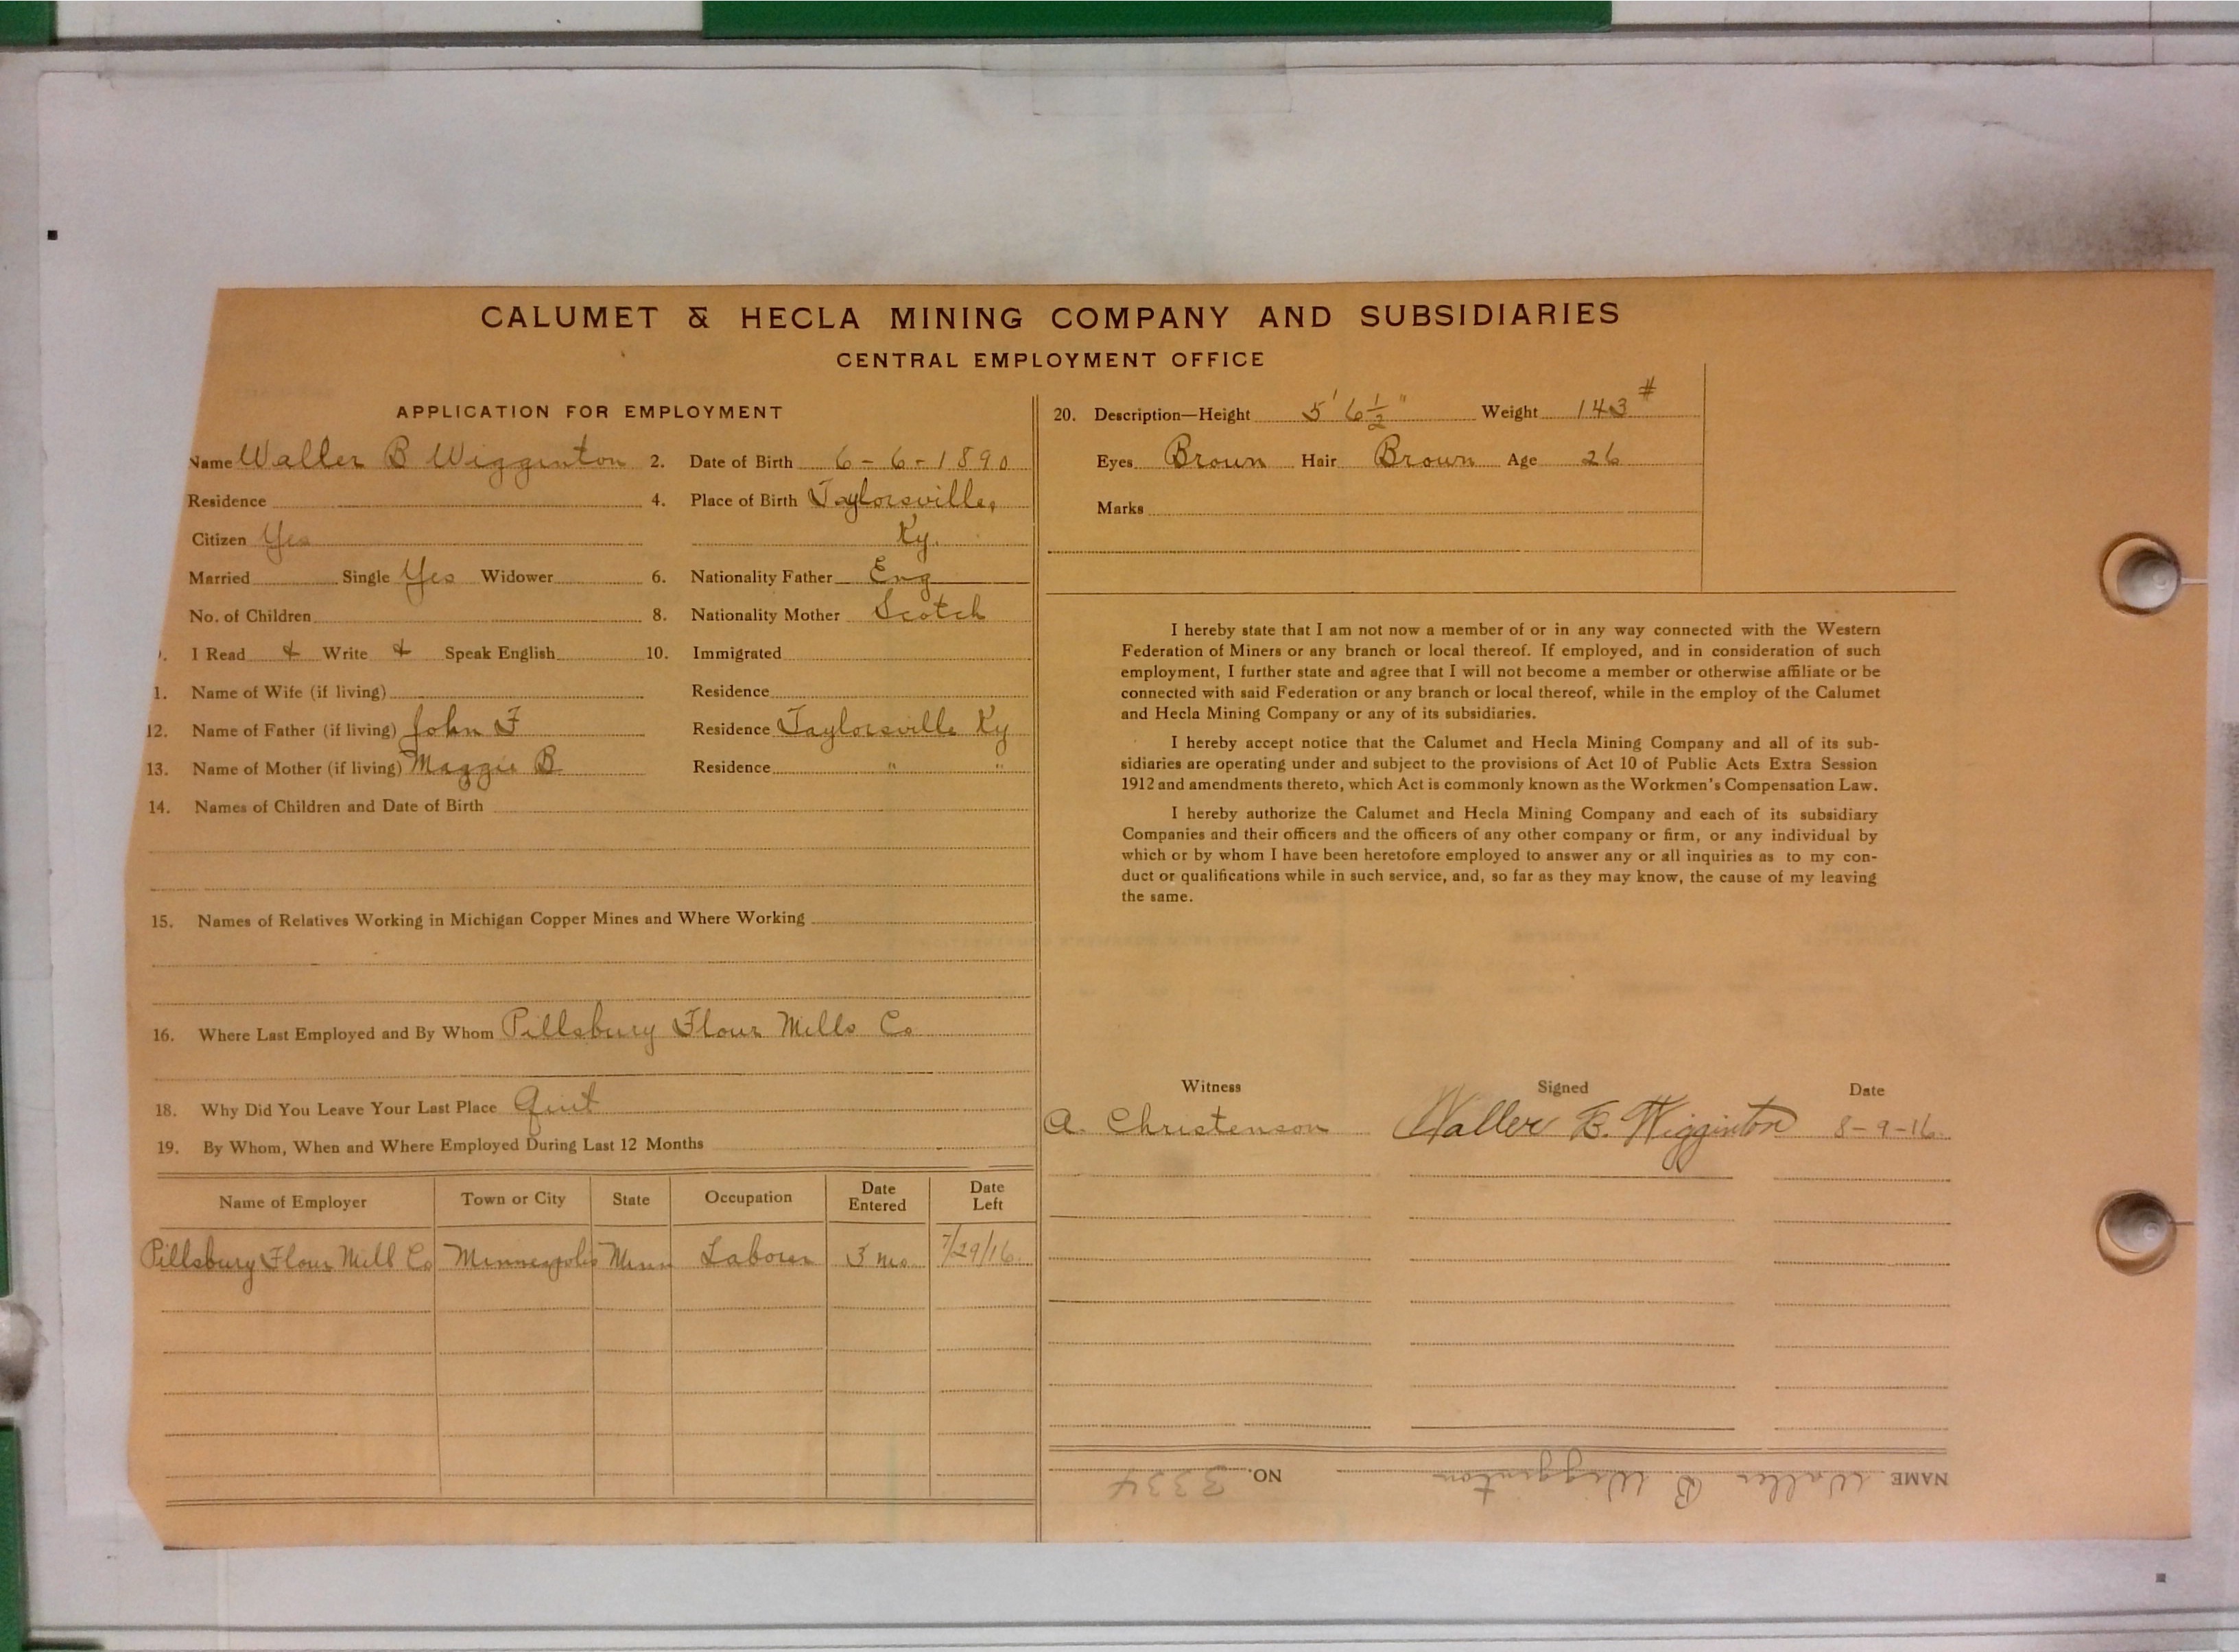 CALUMET & HECLA MINING COMPANY AND SUBSIDIARIES
CENTRAL EMPLOYMENT OFFICE
APPLICATION FOR EMPLOYMENT
Name Waller B Wigginton 2. Date of Birth 6-6-1890
Residence 4. Place of Birth Taylorsville,
Citizen Yes Ky.
Married Single Yes Widower 6. Nationality Father Eng
No. of Children 8. Nationality Mother Scotch
I Read & Write & Speak English 10. Immigrated
1. Name of Wife (if living) Residence
12. Name of Father (if living) John F Residence Taylorsville Ky
13. Name of Mother (if living) Maggie B Residence " "
14. Names of Children and Date of Birth
15. Names of Relatives Working in Michigan Copper Mines and Where Working
16. Where Last Employed and By Whom Pillsbury Flour Mills Co
18. Why Did You Leave Your Last Place Quit
19. By Whom, When and Where Employed During Last 12 Months
Name of Employer Town or City State Occupation Date Entered Date Left
Pillsbury Flour Mill Co Minneapolis Minn Laborer 3 mo 7/29/16
20. Description—Height 5' 6 1/2" Weight 143 #
Eyes Brown Hair Brown Age 26
Marks
I hereby state that I am not now a member of or in any way connected with the Western
Federation of Miners or any branch or local thereof. If employed, and in consideration of such
employment, I further state and agree that I will not become a member or otherwise affiliate or be
connected with said Federation or any branch or local thereof, while in the employ of the Calumet
and Hecla Mining Company or any of its subsidiaries.
I hereby accept notice that the Calumet and Hecla Mining Company and all of its sub-
sidiaries are operating under and subject to the provisions of Act 10 of Public Acts Extra Session
1912 and amendments thereto, which Act is commonly known as the Workmen's Compensation Law.
I hereby authorize the Calumet and Hecla Mining Company and each of its subsidiary
Companies and their officers and the officers of any other company or firm, or any individual by
which or by whom I have been heretofore employed to answer any or all inquiries as to my con-
duct or qualifications while in such service, and, so far as they may know, the cause of my leaving
the same.
Witness Signed Date
A. Christenson Waller B. Wigginton 8-9-16
NAME Waller B. Wigginton NO. 3334